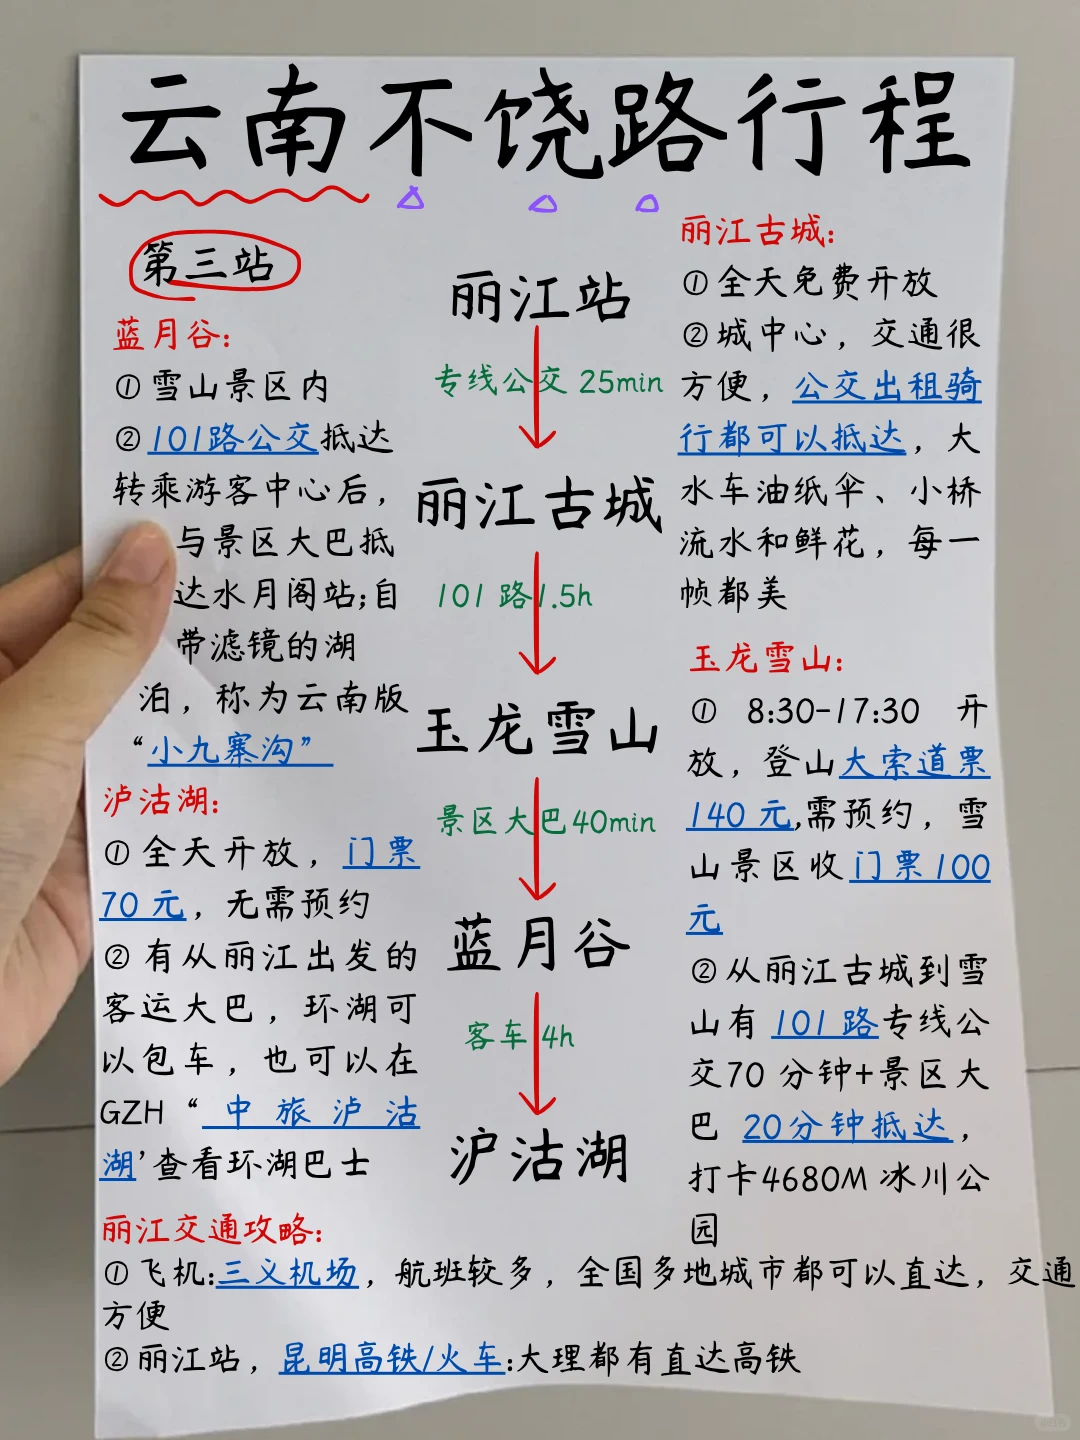 云南不饶路行程
第三站
蓝月谷:
① 雪山景区内
② 101路公交抵达
转乘游客中心后，
与景区大巴抵
达水月阁站;自
带滤镜的湖
泊，称为云南版
“小九寨沟”
泸沽湖:
① 全天开放，门票
70 元，无需预约
② 有从丽江出发的
客运大巴，环湖可
以包车，也可以在
GZH “ 中旅泸沽
湖’查看环湖巴士
丽江站
专线公交 25min
丽江古城
101 路1.5h
玉龙雪山
景区大巴40min
蓝月谷
客车 4h
沪沽湖
丽江古城:
①全天免费开放
②城中心，交通很
方便，公交出租骑
行都可以抵达，大
水车油纸伞、小桥
流水和鲜花，每一
帧都美
玉龙雪山:
① 8:30-17:30 开
放，登山大索道票
140 元,需预约，雪
山景区收门票100
元
②从丽江古城到雪
山有 101 路专线公
交70 分钟+景区大
巴 20分钟抵达，
打卡4680M 冰川公
园
丽江交通攻略:
①飞机:三义机场，航班较多，全国多地城市都可以直达，交通
方便
②丽江站，昆明高铁/火车:大理都有直达高铁